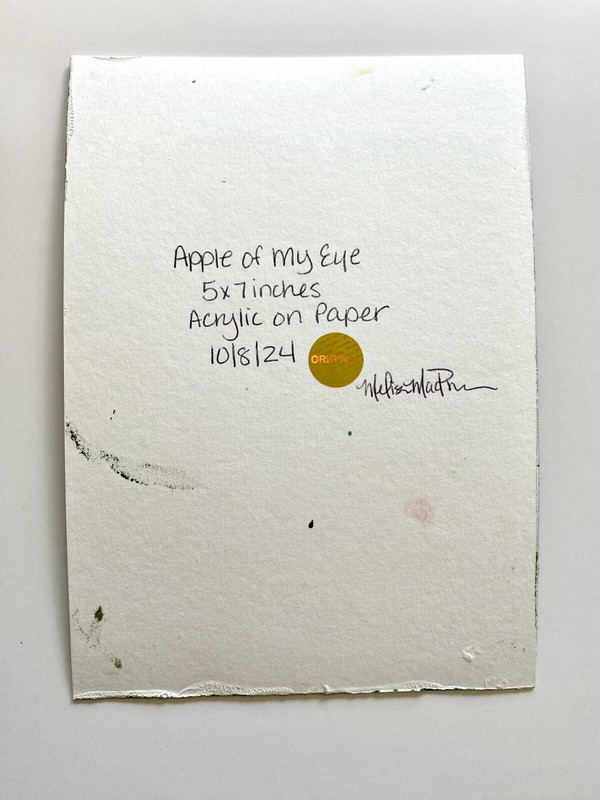 Apple of My Eye
5x7inches
Acrylic on Paper
10/8/24
ORIGINAL